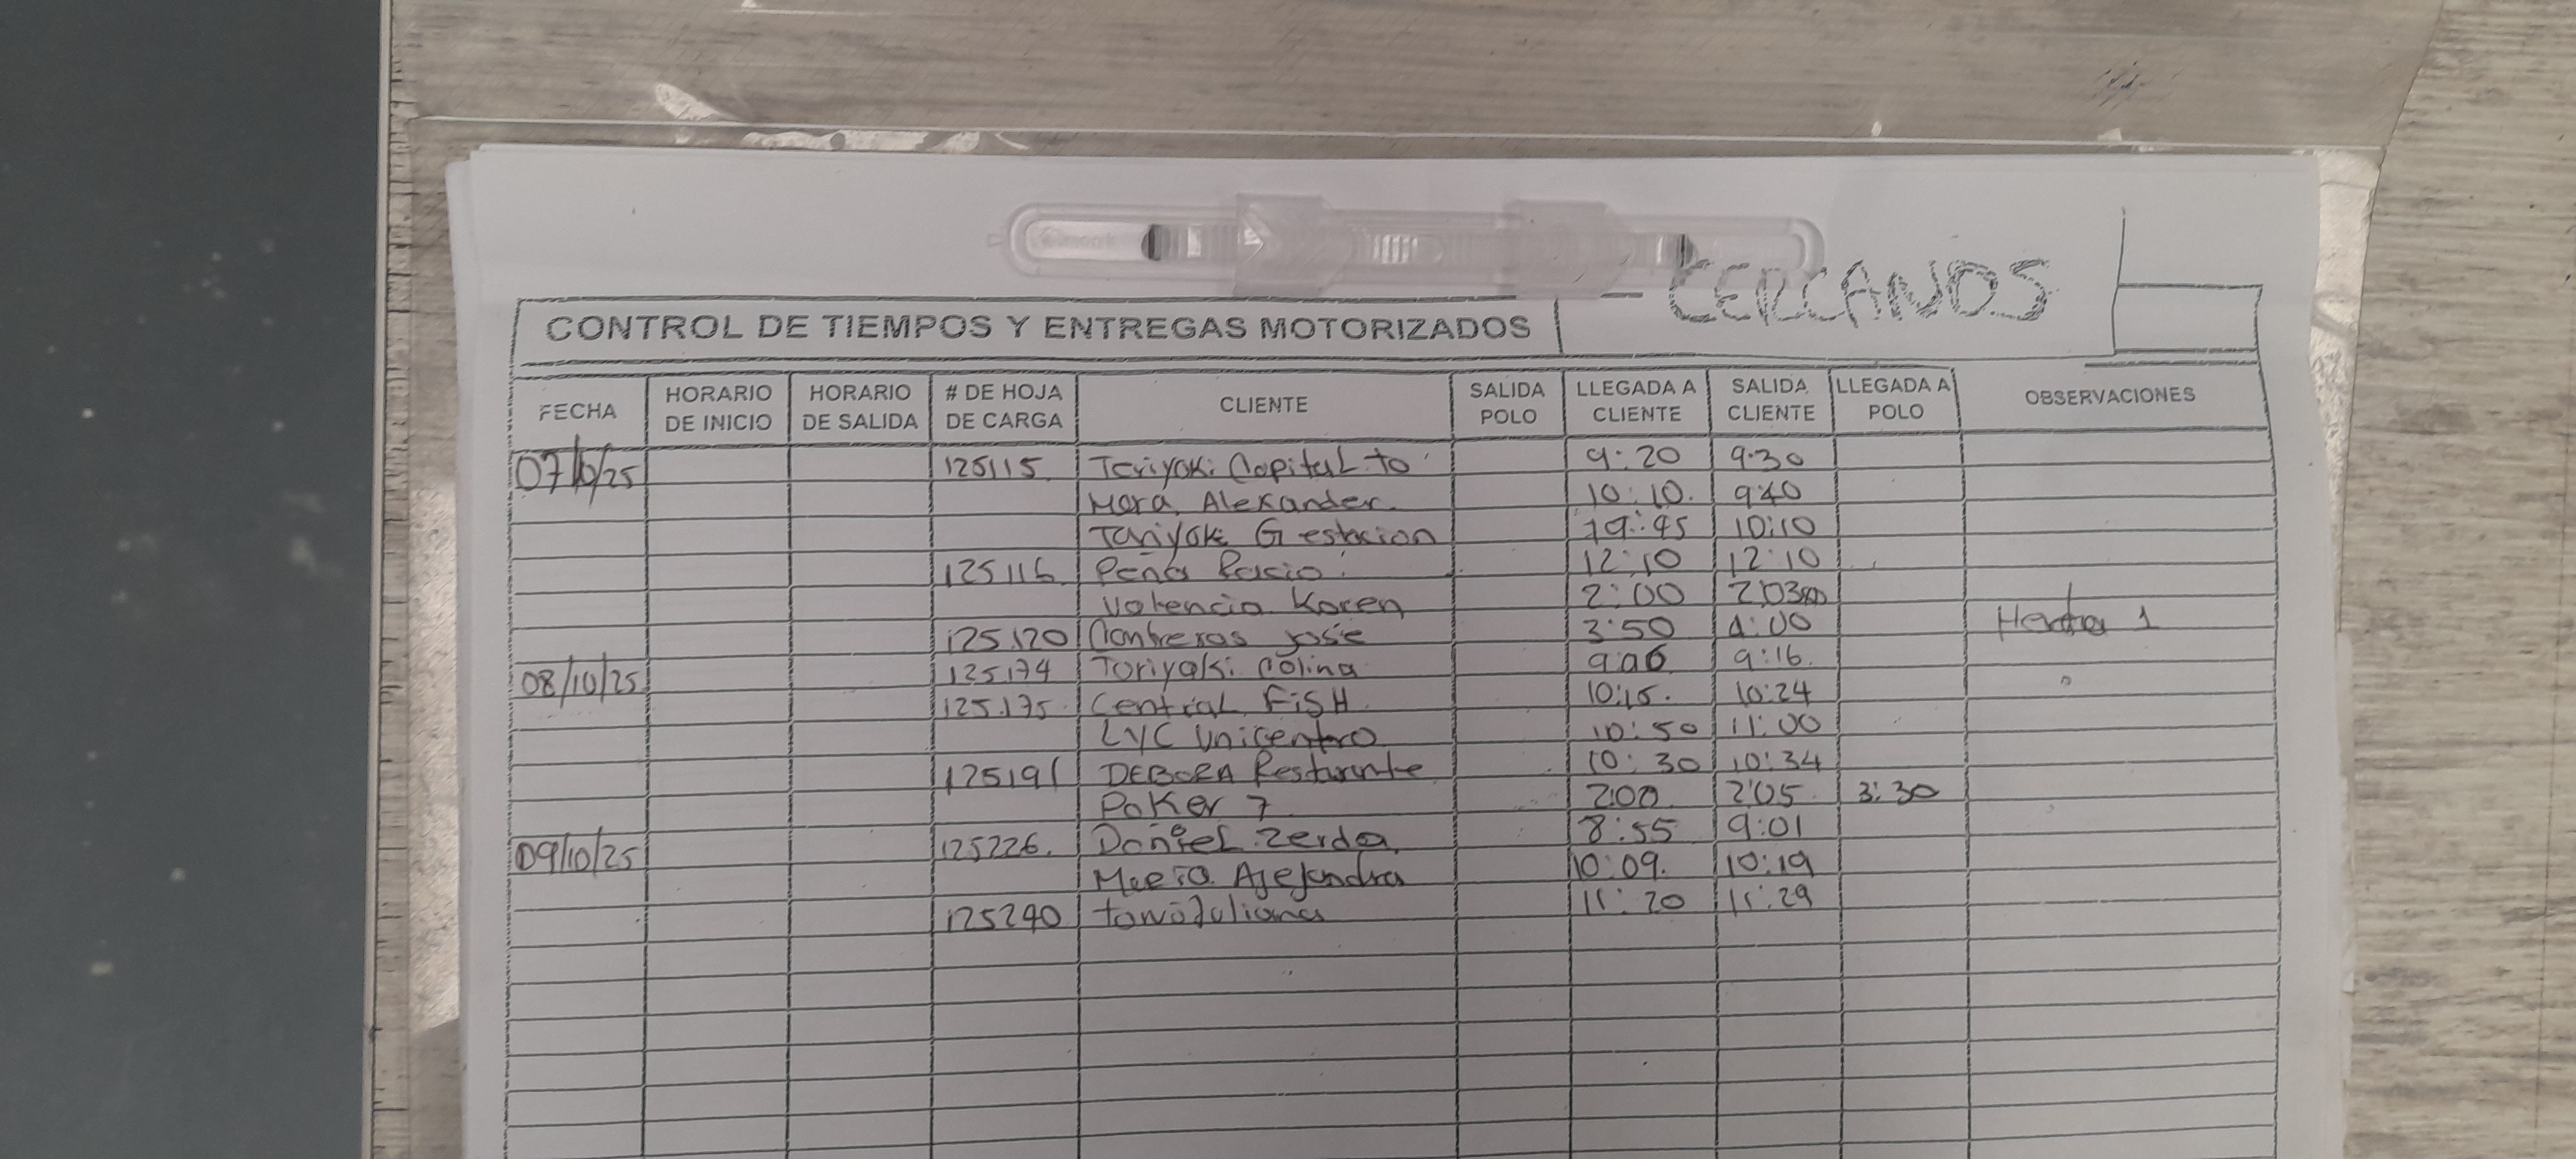 CERCANOS
CONTROL DE TIEMPOS Y ENTREGAS MOTORIZADOS
FECHA HORARIO DE INICIO HORARIO DE SALIDA # DE HOJA DE CARGA CLIENTE SALIDA POLO LLEGADA A CLIENTE SALIDA CLIENTE LLEGADA A POLO OBSERVACIONES
07/10/25 125115 Teriyaki Capital to 9:20 9:30
Mora Alexander 10:10 9:40
Teriyaki G estacion 10:10
125116 Peña Rocio 12:10 12:10
Valencia Karen 2:00 2:03
125120 Contreras jose 3:50 4:00 1
08/10/25 125174 Toriyaki Colina 9:06 9:16
125175 Central FiSH 10:15 10:24
LYC Unicentro 10:50 11:00
125191 DEBORA Resturante 10:30 10:34
Poker 7 2:00 2:05 3:30
09/10/25 125226 Daniel Zerda 8:55 9:01
Alejandra 10:09 10:19
125240 11:20 11:29